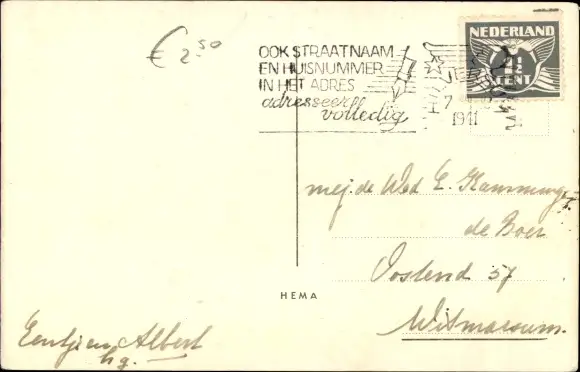 € 2.50
OOK STRAATNAAM
EN HUISNUMMER
IN HET ADRES
adresseer
volledig
NEDERLAND
1½
CENT
7
1941
mej. de Wed E.
de Boer
Oostend 57
Witmarsum.
HEMA
Eentje en Albert
hg.